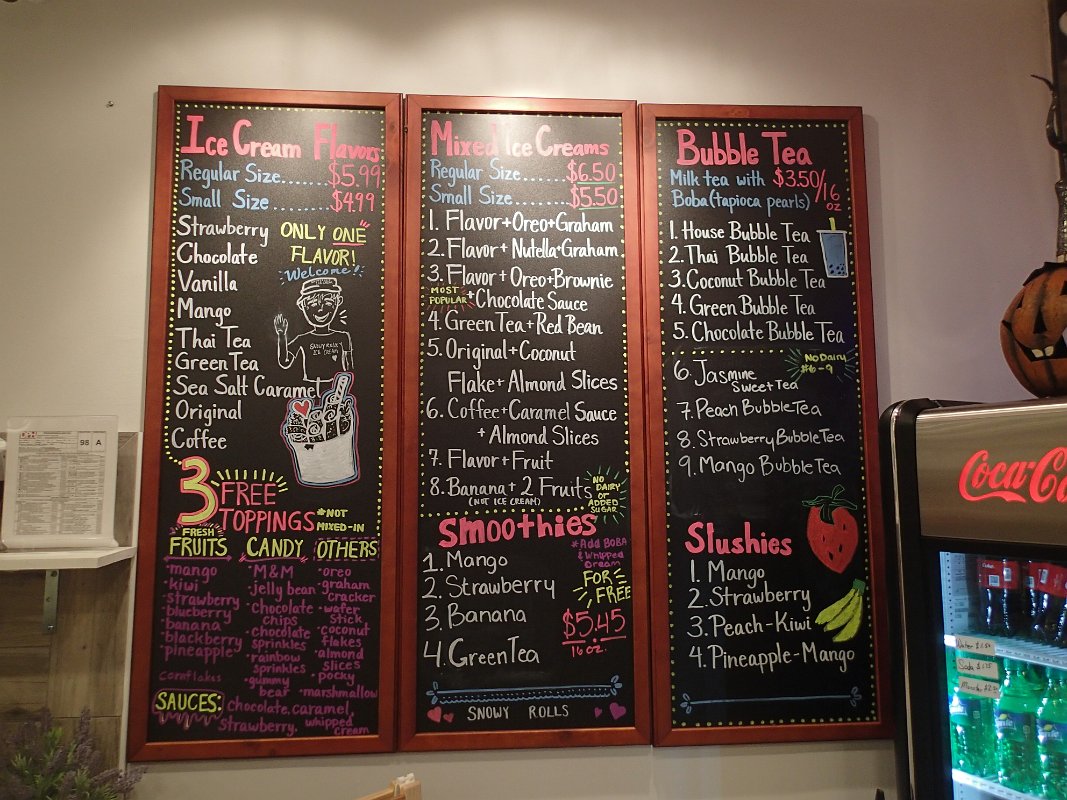 Ice Cream Flavors
Regular Size.......$5.99
Small Size.......$4.99
Strawberry
Chocolate
Vanilla
Mango
Thai Tea
Green Tea
Sea Salt Caramel
Original
Coffee
ONLY ONE
FLAVOR!
Welcome!
ICE CREAM
3 FREE
TOPPINGS
*NOT
MIXED-IN
FRESH
FRUITS
•mango
•kiwi
•strawberry
•blueberry
•banana
•blackberry
•pineapple
cornflakes
CANDY
•M&M
•jelly bean
•chocolate
chips
•chocolate
sprinkles
•rainbow
sprinkles
•gummy
bear
OTHERS
•oreo
•graham
cracker
•wafer
stick
•coconut
flakes
•almond
slices
•pocky
•marshmallow
SAUCES:
chocolate, caramel,
strawberry, whipped
cream
Mixed Ice Creams
Regular Size.......$6.50
Small Size.......$5.50
1. Flavor+Oreo+Graham
2. Flavor+Nutella+Graham
3. Flavor+Oreo+Brownie
MOST
POPULAR
+Chocolate Sauce
4. Green Tea+Red Bean
5. Original+Coconut
Flake+Almond Slices
6. Coffee+Caramel Sauce
+Almond Slices
7. Flavor+Fruit
8. Banana+2 Fruits
(NOT ICE CREAM)
NO
DAIRY
OR
ADDED
SUGAR
Smoothies
1. Mango
2. Strawberry
3. Banana
4. Green Tea
*Add BOBA
& Whipped
Cream
FOR
FREE
$5.45
16 oz.
SNOWY ROLLS
Bubble Tea
Milk tea with $3.50/16
oz
Boba (tapioca pearls)
1. House Bubble Tea
2. Thai Bubble Tea
3. Coconut Bubble Tea
4. Green Bubble Tea
5. Chocolate Bubble Tea
No Dairy
#6-9
6. Jasmine
Sweet Tea
7. Peach Bubble Tea
8. Strawberry Bubble Tea
9. Mango Bubble Tea
Slushies
1. Mango
2. Strawberry
3. Peach-Kiwi
4. Pineapple-Mango
98 A
Coca-Co
Water
Soda
Sprite